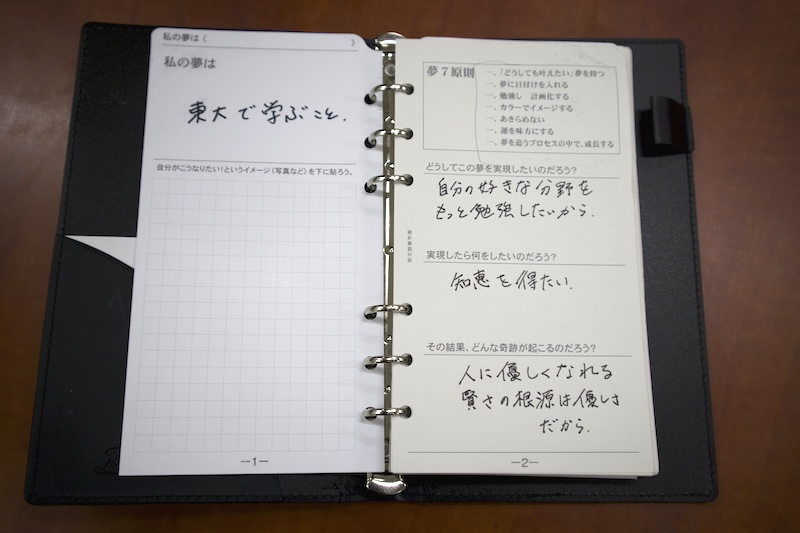 私の夢は〈　　　　〉
私の夢は
東大で学ぶこと.
自分がこうなりたい!というイメージ(写真など)を下に貼ろう。
—1—
夢7原則
一、「どうしても叶えたい」夢を持つ
一、夢に日付けを入れる
一、勉強し　計画化する
一、カラーでイメージする
一、あきらめない
一、運を味方にする
一、夢を追うプロセスの中で、成長する
どうしてこの夢を実現したいのだろう?
自分の好きな分野を
もっと勉強したいから.
実現したら何をしたいのだろう?
知恵を得たい.
その結果、どんな奇跡が起こるのだろう?
人に優しくなれる
賢さの根源は優しさ
だから.
—2—